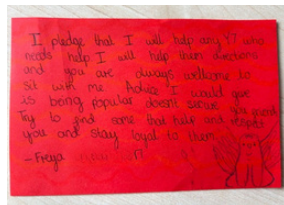 I pledge that I will help any Y7 who
needs help I will help them directions
and you are always welcome to
sit with me Advice I would give
is being popular doesnt secure you friends
Try to find some that help and respect
you and stay loyal to them.
- Freya